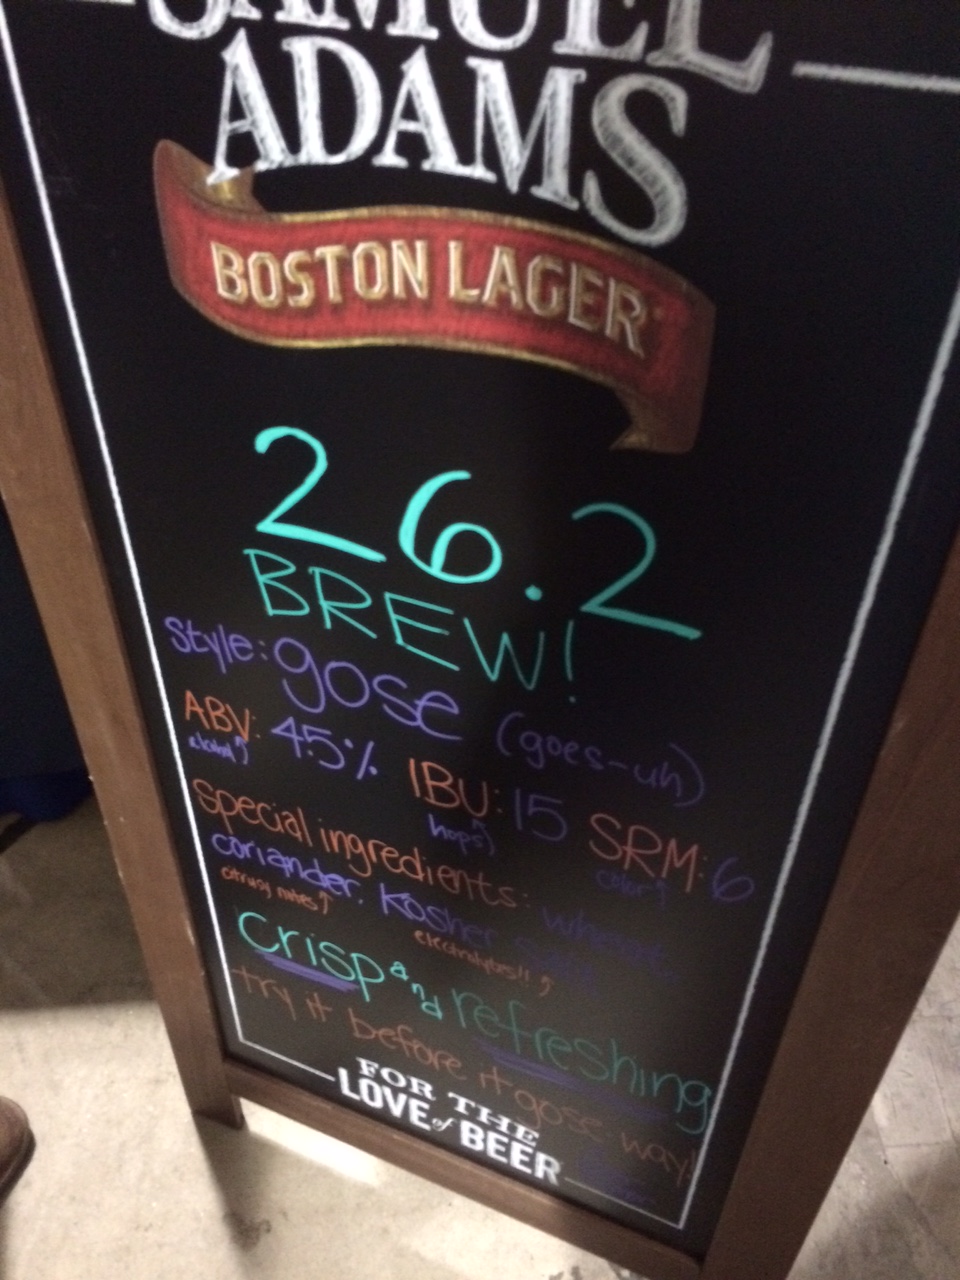 SAMUEL
ADAMS
BOSTON LAGER
26.2
BREW!
Style: gose (goes-uh)
ABV: 4.5% IBU: 15 SRM: 6
alcohol hops color
special ingredients: wheat,
coriander, Kosher salt
citrusy notes electrolytes!!
Crisp and refreshing
try it before it gose way!
FOR THE
LOVE of BEER